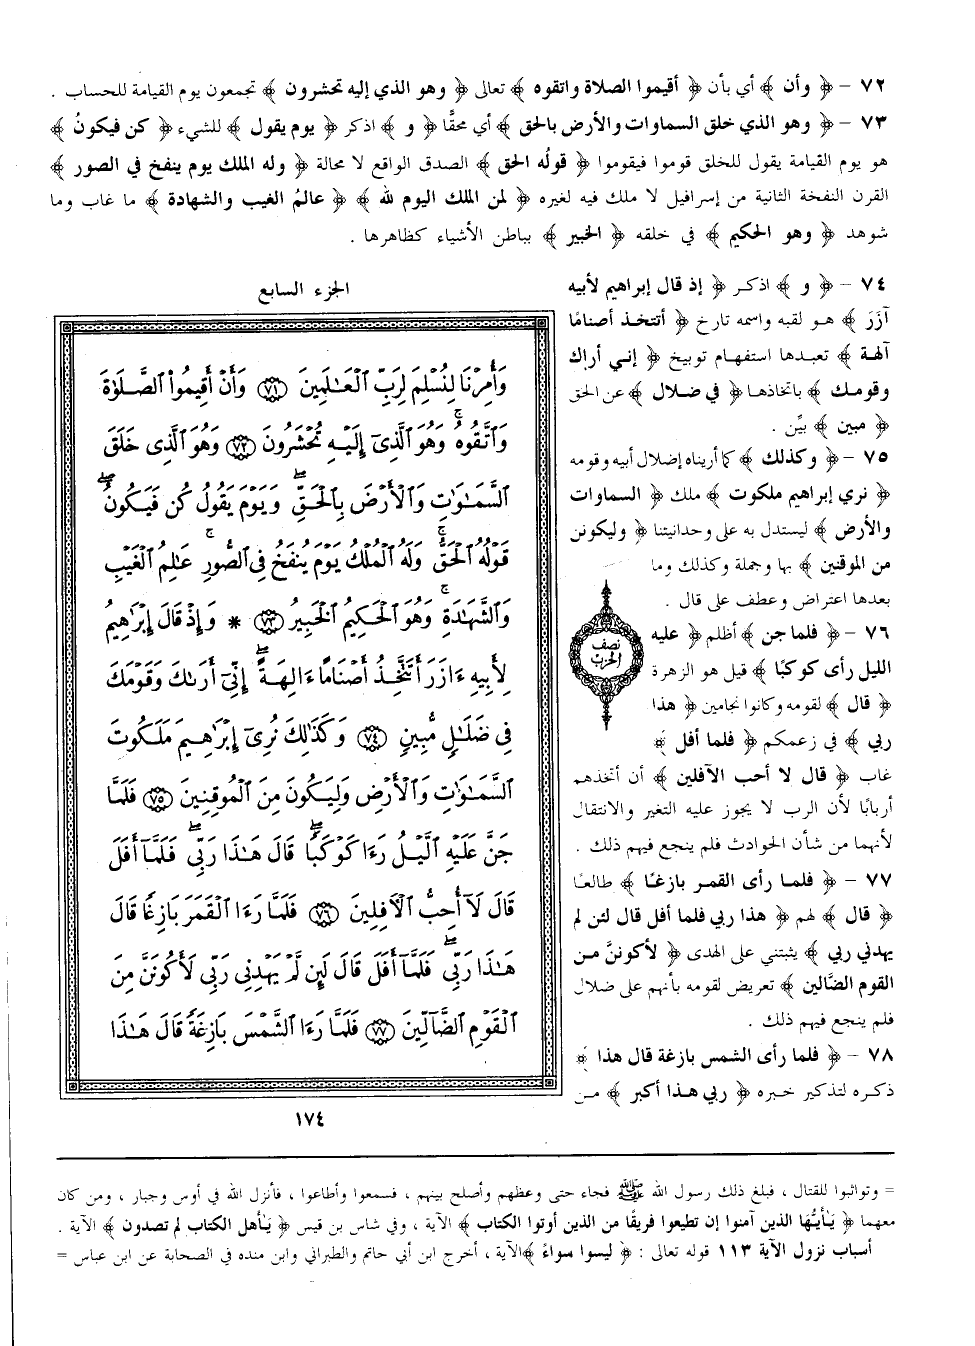 ٧٢ - ﴿ وأن ﴾ أي بأن ﴿ أقيموا الصلاة واتقوه ﴾ تعالى ﴿ وهو الذي إليه تحشرون ﴾ تجمعون يوم القيامة للحساب .
٧٣ - ﴿ وهو الذي خلق السماوات والأرض بالحق ﴾ أي محقًّا ﴿ و ﴾ اذكر ﴿ يوم يقول ﴾ للشيء ﴿ كن فيكونُ ﴾
هو يوم القيامة يقول للخلق قوموا فيقوموا ﴿ قولُه الحق ﴾ الصدق الواقع لا محالة ﴿ وله الملك يوم ينفخ في الصور ﴾
القرن النفخة الثانية من إسرافيل لا ملك فيه لغيره ﴿ لمن الملك اليوم لله ﴾ ﴿ عالمُ الغيب والشهادة ﴾ ما غاب وما
شوهد ﴿ وهو الحكيم ﴾ في خلقه ﴿ الخبير ﴾ بباطن الأشياء كظاهرها .
٧٤ - ﴿ و ﴾ اذكر ﴿ إذ قال إبراهيم لأبيه
آزَرَ ﴾ هو لقبه واسمه تارخ ﴿ أتتخذ أصنامًا
آلهة ﴾ تعبدها استفهام توبيخ ﴿ إني أراك
وقومك ﴾ باتخاذها ﴿ في ضلال ﴾ عن الحق
﴿ مبين ﴾ بيِّن .
٧٥ - ﴿ وكذلك ﴾ كما أريناه إضلال أبيه وقومه
﴿ نري إبراهيم ملكوت ﴾ ملك ﴿ السماوات
والأرض ﴾ ليستدل به على وحدانيتنا ﴿ وليكونن
من الموقنين ﴾ بها وجملة وكذلك وما
بعدها اعتراض وعطف على قال .
٧٦ - ﴿ فلما جن ﴾ أظلم ﴿ عليه
الليل رأى كوكبًا ﴾ قيل هو الزهرة
﴿ قال ﴾ لقومه وكانوا نجامين ﴿ هذا
ربي ﴾ في زعمكم ﴿ فلما أفل ﴾
غاب ﴿ قال لا أحب الآفلين ﴾ أن أتخذهم
أربابًا لأن الرب لا يجوز عليه التغير والانتقال
لأنهما من شأن الحوادث فلم ينجع فيهم ذلك .
٧٧ - ﴿ فلما رأى القمر بازغًا ﴾ طالعًا
﴿ قال ﴾ لهم ﴿ هذا ربي فلما أفل قال لئن لم
يهدني ربي ﴾ يثبتني على الهدى ﴿ لأكوننَّ من
القوم الضَّالين ﴾ تعريض لقومه بأنهم على ضلال
فلم ينجع فيهم ذلك .
٧٨ - ﴿ فلما رأى الشمس بازغة قال هذا ﴾
ذكره لتذكير خبره ﴿ ربي هذا أكبر ﴾ من
نصف
الحزب
الجزء السابع
وَأُمِرْنَا لِنُسْلِمَ لِرَبِّ ٱلْعَـٰلَمِينَ ٧١ وَأَنْ أَقِيمُوا۟ ٱلصَّلَوٰةَ
وَٱتَّقُوهُ ۚ وَهُوَ ٱلَّذِىٓ إِلَيْهِ تُحْشَرُونَ ٧٢ وَهُوَ ٱلَّذِى خَلَقَ
ٱلسَّمَـٰوَٰتِ وَٱلْأَرْضَ بِٱلْحَقِّ ۖ وَيَوْمَ يَقُولُ كُن فَيَكُونُ ۖ
قَوْلُهُ ٱلْحَقُّ ۚ وَلَهُ ٱلْمُلْكُ يَوْمَ يُنفَخُ فِى ٱلصُّورِ ۚ عَـٰلِمُ ٱلْغَيْبِ
وَٱلشَّهَـٰدَةِ ۚ وَهُوَ ٱلْحَكِيمُ ٱلْخَبِيرُ ٧٣ * وَإِذْ قَالَ إِبْرَٰهِيمُ
لِأَبِيهِ ءَازَرَ أَتَتَّخِذُ أَصْنَامًا ءَالِهَةً ۖ إِنِّىٓ أَرَىٰكَ وَقَوْمَكَ
فِى ضَلَـٰلٍ مُّبِينٍ ٧٤ وَكَذَٰلِكَ نُرِىٓ إِبْرَٰهِيمَ مَلَكُوتَ
ٱلسَّمَـٰوَٰتِ وَٱلْأَرْضِ وَلِيَكُونَ مِنَ ٱلْمُوقِنِينَ ٧٥ فَلَمَّا
جَنَّ عَلَيْهِ ٱلَّيْلُ رَءَا كَوْكَبًا ۖ قَالَ هَـٰذَا رَبِّى ۖ فَلَمَّآ أَفَلَ
قَالَ لَآ أُحِبُّ ٱلْآفِلِينَ ٧٦ فَلَمَّا رَءَا ٱلْقَمَرَ بَازِغًا قَالَ
هَـٰذَا رَبِّى ۖ فَلَمَّآ أَفَلَ قَالَ لَئِن لَّمْ يَهْدِنِى رَبِّى لَأَكُونَنَّ مِنَ
ٱلْقَوْمِ ٱلضَّآلِّينَ ٧٧ فَلَمَّا رَءَا ٱلشَّمْسَ بَازِغَةً قَالَ هَـٰذَا
١٧٤
= وتواثبوا للقتال ، فبلغ ذلك رسول الله ﷺ فجاء حتى وعظهم وأصلح بينهم ، فسمعوا وأطاعوا ، فأنزل الله في أوس وجبار ، ومن كان
معهما ﴿ يَـٰأَيُّهَا الذين آمنوا إن تطيعوا فريقًا من الذين أوتوا الكتاب ﴾ الآية ، وفي شاس بن قيس ﴿ يَـٰأهل الكتاب لم تصدون ﴾ الآية .
أسباب نزول الآية ١١٣ قوله تعالى : ﴿ ليسوا سواءً ﴾ الآية ، أخرج ابن أبي حاتم والطبراني وابن منده في الصحابة عن ابن عباس =